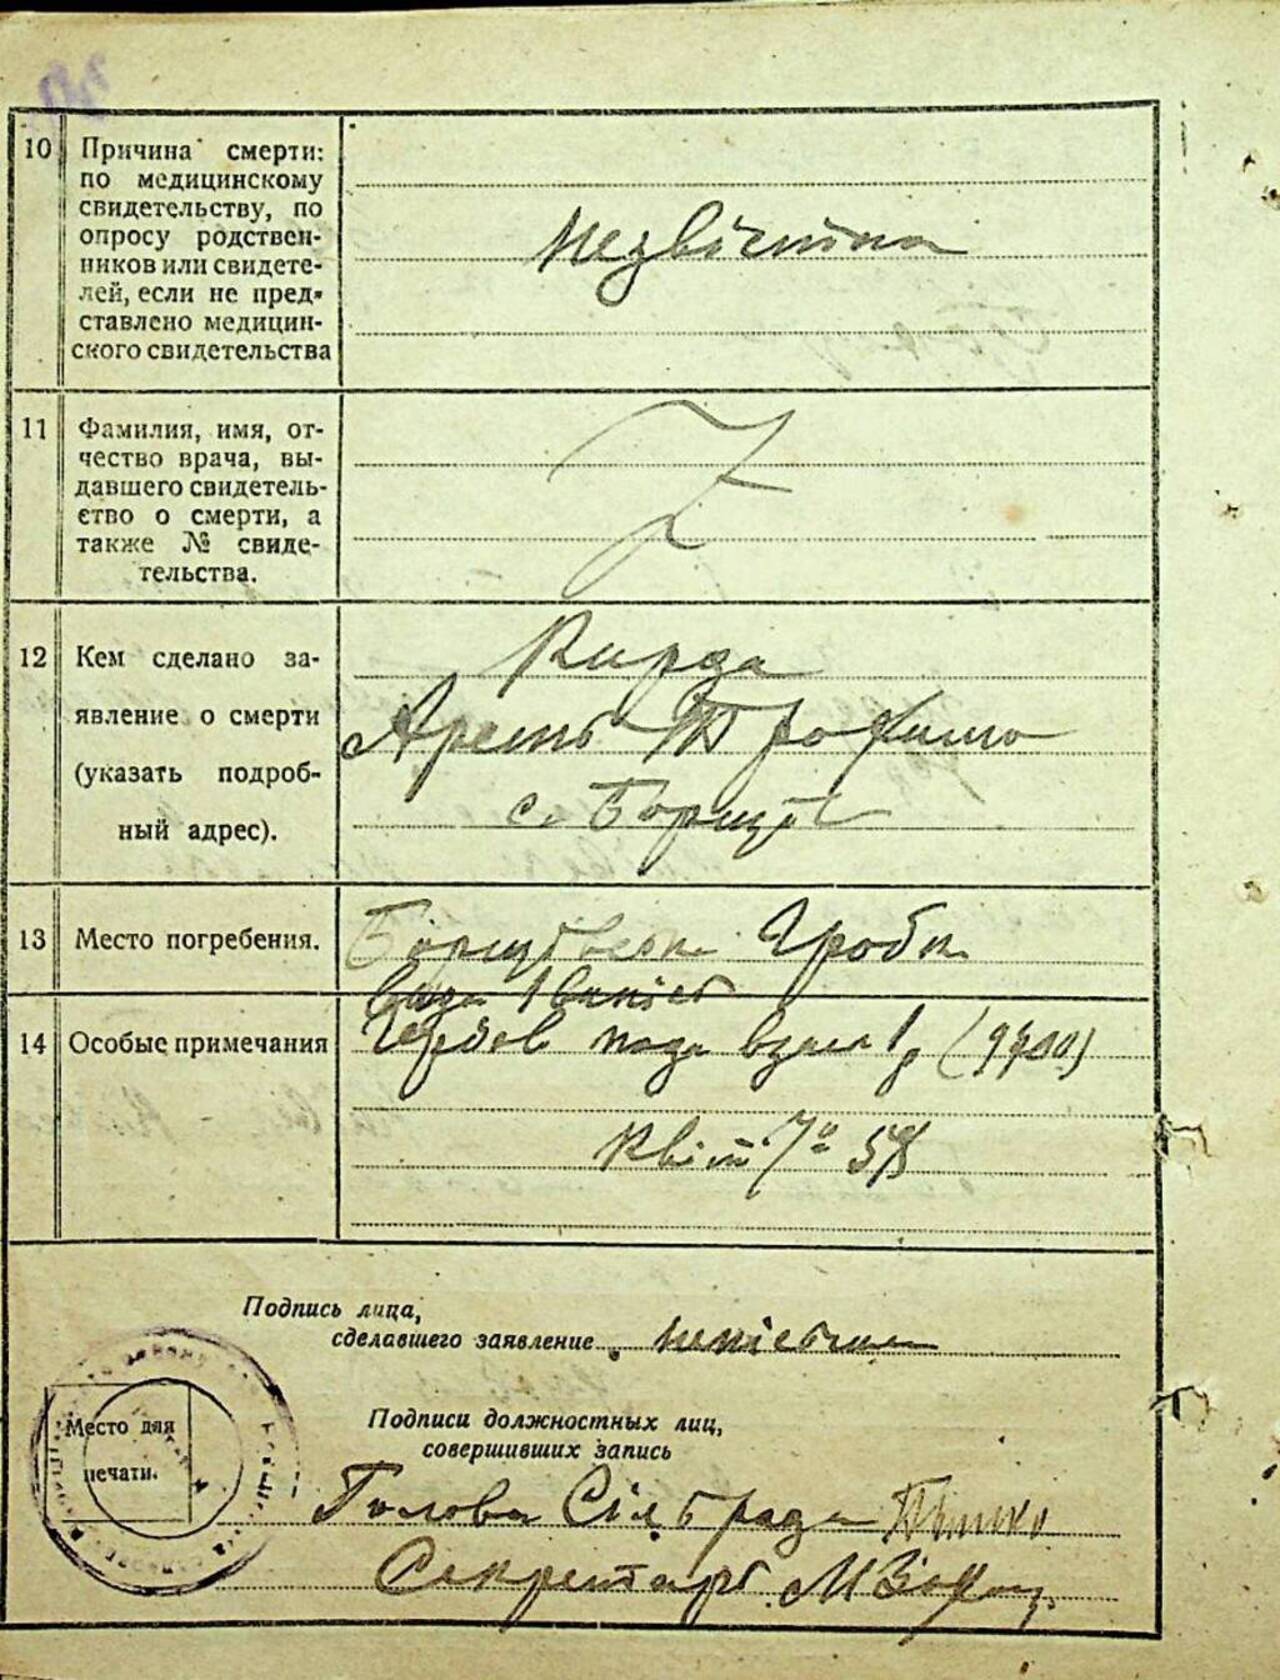 10 Причина смерти:
по медицинскому
свидетельству, по
опросу родствен-
ников или свидете-
лей, если не пред-
ставлено медицин-
ского свидетельства
незвістна
11 Фамилия, имя, от-
чество врача, вы-
давшего свидетель-
ство о смерти, а
также № свиде-
тельства.
12 Кем сделано за-
явление о смерти
(указать подроб-
ный адрес).
Кирда
Арень Трофимо
с. Борщів
13 Место погребения.
Гробк
14 Особые примечания
Квіт 7
Подпись лица,
сделавшего заявление
Место для
печати.
Подписи должностных лиц,
совершивших запись
Голова Сільради
Секретарь